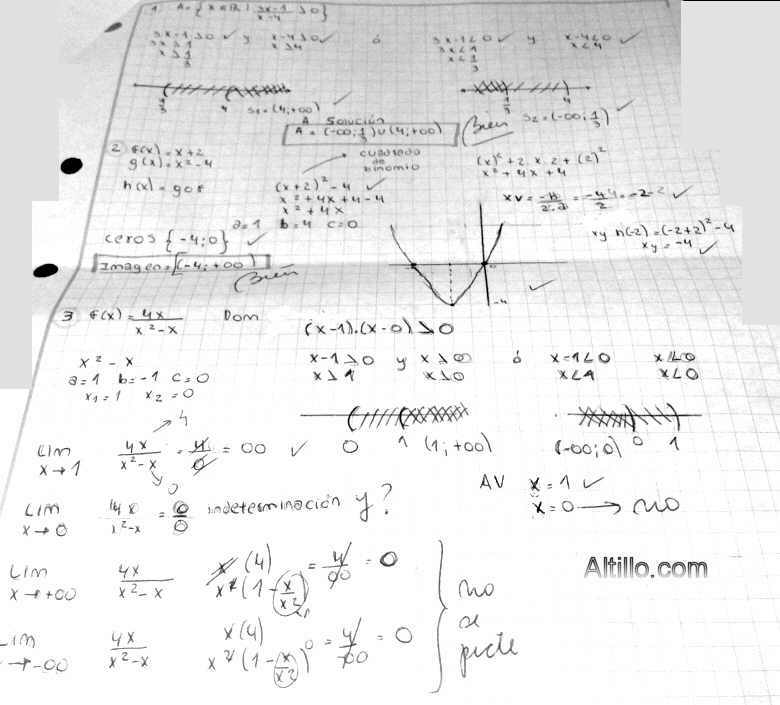 1. A= { x ∈ R | 3x-1/x-4 > 0 }
3x-1>0 ✓ y x-4>0 ✓ ó 3x-1<0 ✓ y x-4<0 ✓
3x>1 x>4 3x<1 x<4
x>1/3 x<1/3
1/3 4 S1=(4;+∞) ✓ 1/3 4 S2=(-∞;1/3) ✓
A Solución
A = (-∞;1/3)∪(4;+∞) Bien
2 f(x)=x+2
g(x)=x²-4
h(x)=gof
cuadrado de binomio
(x+2)²-4 ✓
x²+4x+4-4
x²+4x
a=1 b=4 c=0
(x)²+2.x.2+(2)²
x²+4x+4
xv=-b/2.a=-4/2=-2 ✓
xy h(-2)=(-2+2)²-4
xy=-4 ✓
ceros {-4;0} ✓
Imagen=[-4;+∞) Bien
-4 ✓
3 f(x)=4x/x²-x Dom (x-1).(x-0)>0
x²-x
a=1 b=-1 c=0
x1=1 x2=0
x-1>0 y x>0 ó x-1<0 x<0
x>1 x>0 x<1 x<0
0 1 (1;+∞) (-∞;0) 0 1
Lim x→1 4x/x²-x = 4/0 = ∞ ✓
4
0
AV x=1 ✓
x=0 → no
Lim x→0 4x/x²-x = 0/0 indeterminación y?
Lim x→+∞ 4x/x²-x x(4)/x²(1-x/x²) = 4/∞ = 0
Lim x→-∞ 4x/x²-x x(4)/x²(1-x/x²) = 4/∞ = 0
no
se
Altillo.com